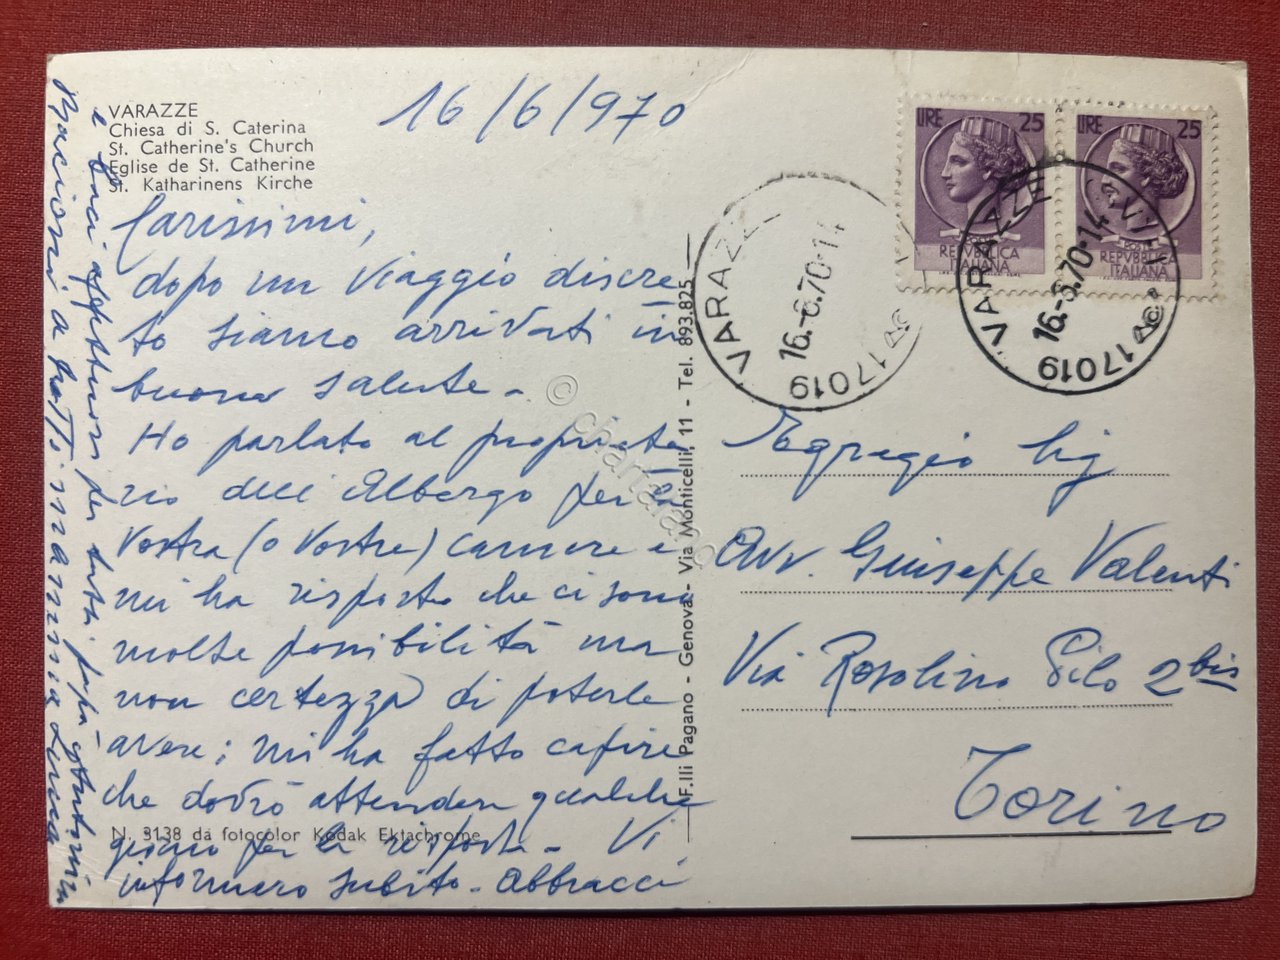 VARAZZE
Chiesa di S. Caterina
St. Catherine's Church
Eglise de St. Catherine
St. Katharinens Kirche
16/6/970
Carissimi,
dopo un viaggio discre
to siamo arrivati in
buona salute -
Ho parlato al proprieta
rio dell'Albergo per la
Vostra (o Vostre) camere e
mi ha risposto che ci sono
molte possibilità ma
non certezza di poterle
avere; mi ha fatto capire
che dovrò attendere qualche
giorno per la risposta - Vi
informerò subito - Abbracci
e baci affettuosi per tutti papà
Bacioni a tutti mamma
N. 3138 da fotocolor Kodak Ektachrome
F.lli Pagano - Genova - Via Monticelli, 11 - Tel. 893.825
© chartaland
LIRE 25
REPVBBLICA
ITALIANA
LIRE 25
POSTE
REPVBBLICA
ITALIANA
VARAZZE
16.-6.70.14
17019
VARAZZE
16.-6.70.14
17019
Egregio Sig
Avv. Giuseppe Valenti
Via Rosolino Pilo 2 bis
Torino